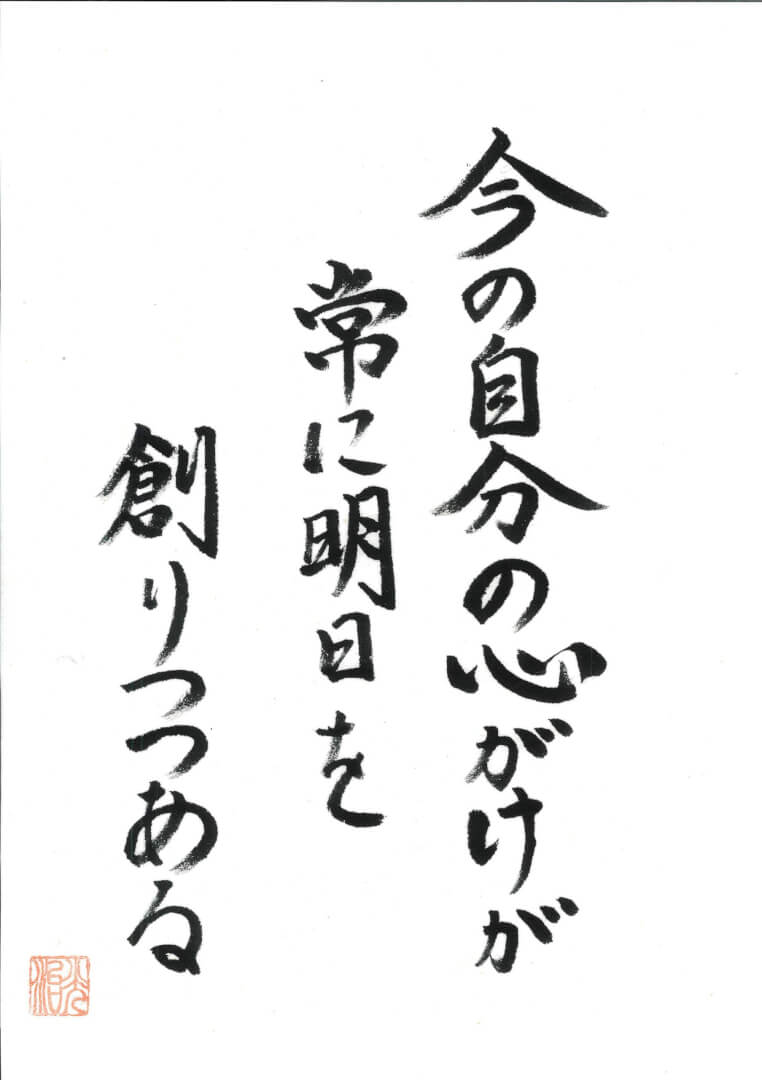 今の自分の心がけが
常に明日を
創りつつある